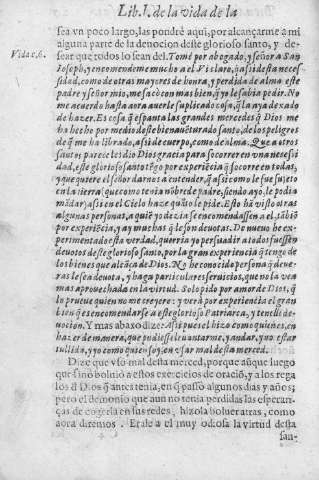 Lib. I. de la vida de la
sea vn poco largo, las pondrè aqui, por alcançarme a mi
alguna parte de la deuocion deste glorioso santo, y de-
Vida c. 6.
sear que todos lo sean del. Tomè por abogado, y señor a San
Ioseph, y encomendeme mucho a el. Vi claro, q̃ assi desta necess-
sidad, como de otras mayores de honra, y perdida de alma este
padre y señor mio, me sacò con mas bien, q̃ yo le sabia pedir. No
me acuerdo hasta aora auerle suplicado cosa, q̃ la aya dexado
de hazer. Es cosa q̃ espanta las grandes mercedes q̃ Dios me
ha hecho por medio deste bienauẽturado santo, de los peligros
de q̃ me ha librado, assi de cuerpo, como de alma. Que a otros
santos parece les dio Dios gracia para socorrer en vna necesi-
dad, este glorioso santo tẽgo por experiẽcia q̃ socorre en todas,
y que quiere el señor darnos a entender, q̃ assi como le fue sujeto
en la tierra (que como tenia nõbre de padre, siendo ayo, le podia
mãdar) assi en el Cielo haze quãto le pide. Esto hã visto otras
algunas personas, a quiẽ yo dezia se encomendassen a el, tãbiẽ
por experiẽcia, y ay muchas q̃ le son deuotas. De nueuo he ex-
perimentado esta verdad, querria yo persuadir a todos fuessen
deuotos deste glorioso santo, por la gran experiencia q̃ tengo de
los bienes que alcãça de Dios. No he conocido persona q̃ deue-
ras le sea deuota, y haga particulares seruicios, que no la vea
mas aprouechada en la virtud. Solo pido por amor de Dios, q̃
lo prueue quien no me creyere: y verà por experiencia el gran
bien q̃ es encomendarse a este glorioso Patriarca, y tenelle de-
uocion. Y mas abaxo dize: assi pues el hizo como quien es, en
hazer de manera, que pudiesse leuantarme, y andar, y no estar
tullida, y yo como quien soy, en vsar mal desta merced.
Dize que vsò mal desta merced, porque aũque luego
que sanò boluiò a estos exercicios de oraciõ, y a los rega
los de Dios q̃ antes tenia, en q̃ passò algunos dias y años;
pero el demonio que aun no tenia perdidas las esperan-
ças de cogerla en sus redes, hizola boluer atras, como
aora diremos. Erale a el muy odiosa la virtud desta
san-